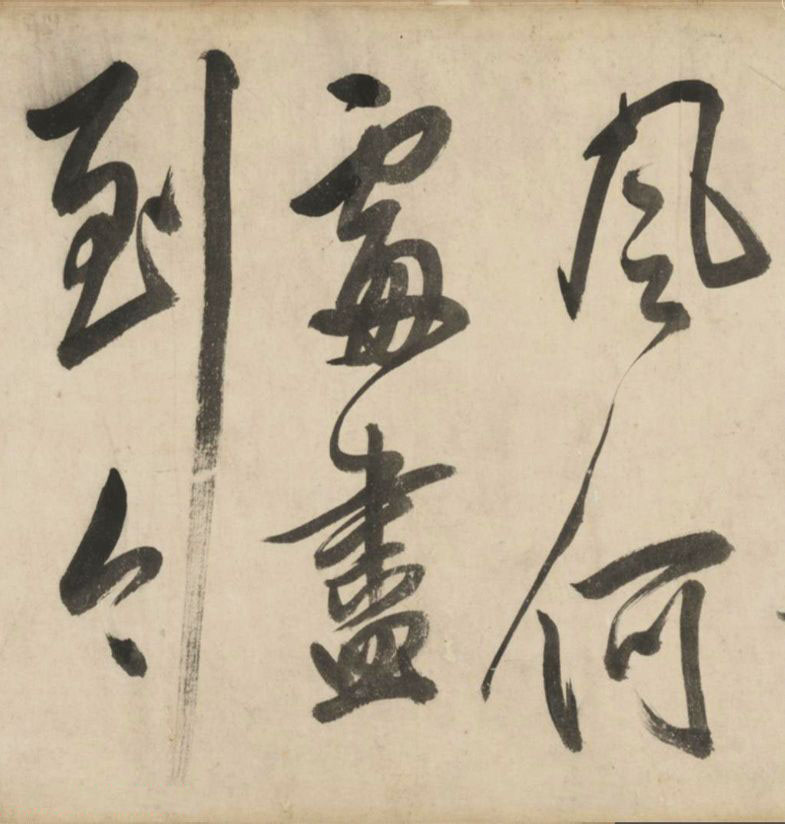 風何
處盡
到今